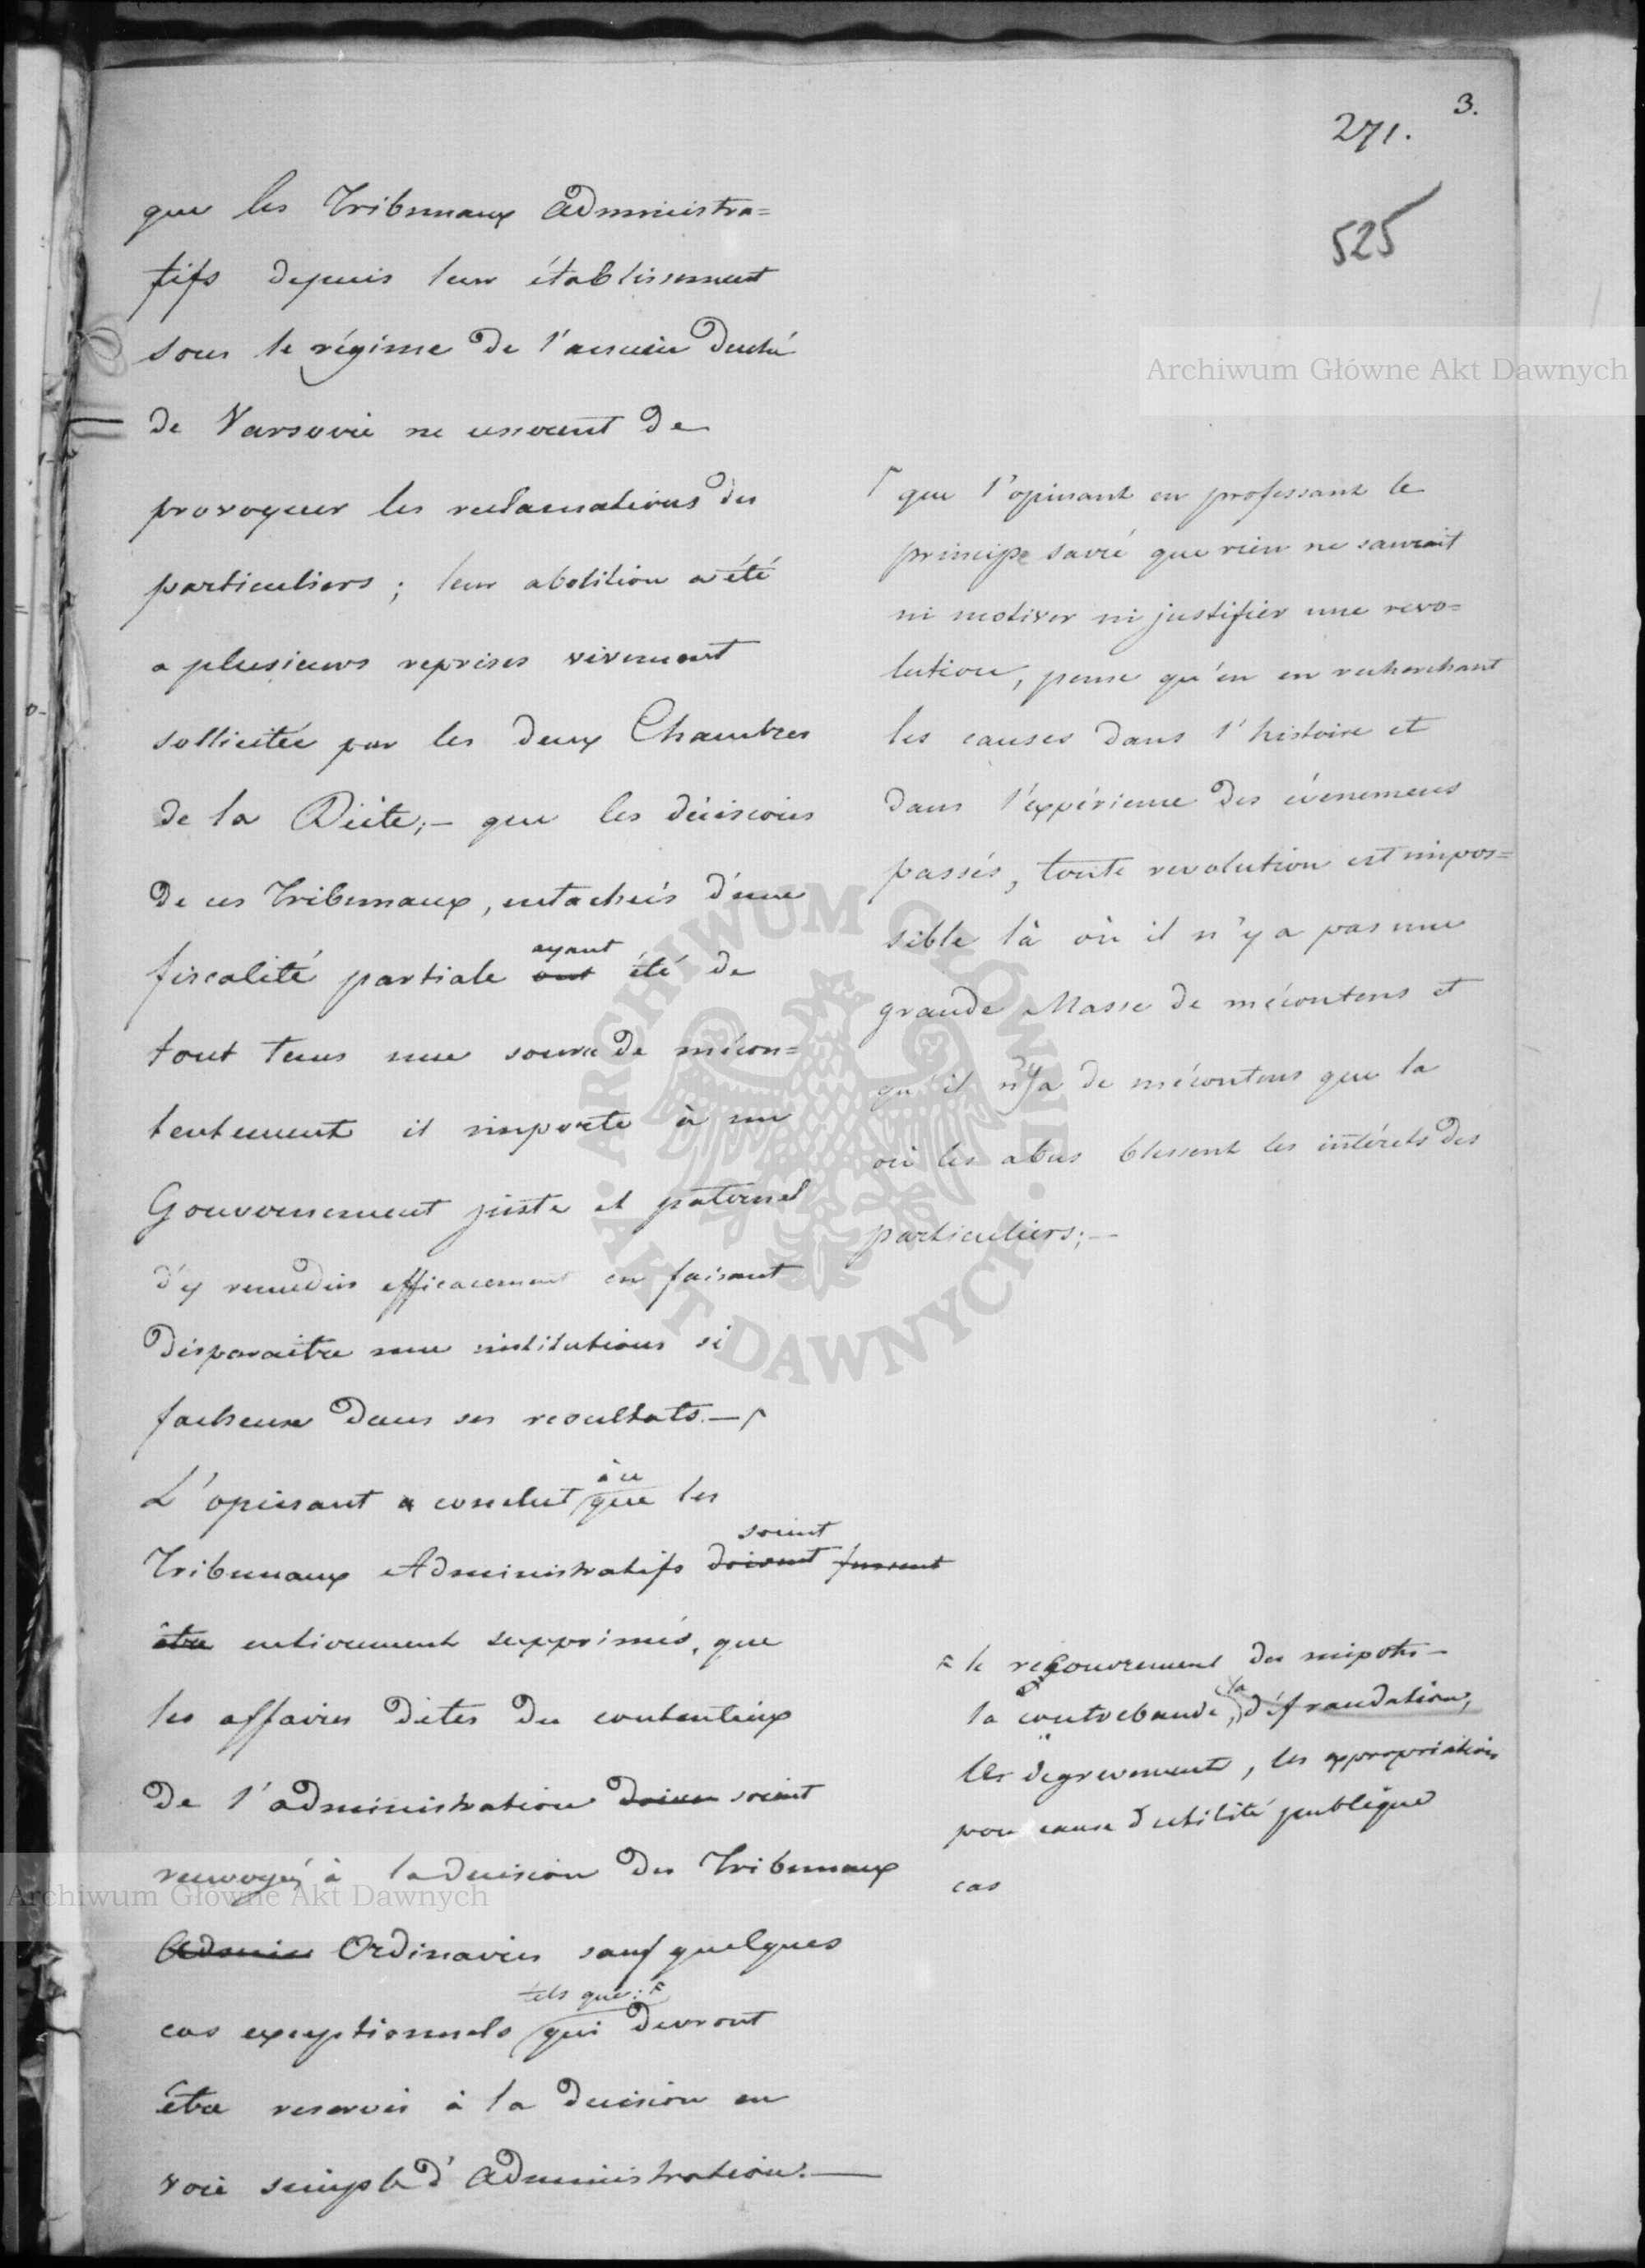 3.
271.
525
que les Tribunaux Administra=
tifs depuis leur établissement
sous le régime de l'ancien Duché
de Varsovie ne cessèrent de
provoquer les reclamations des
particuliers ; leur abolition a été
a plusieurs reprises vivement
sollicitée par les deux Chambres
de la Diète;— que les décisions
de ces Tribunaux, entachés d'une
ayant
fiscalité partiale ont été de
tout tems une source de mécon=
tentement il importe à un
Gouvernement juste et paternel
d'y remedier efficacement en faisant
disparaitre une institutions si
facheuse dans ses resultats.—
L'opinant a conclut que les
à ce
soient
Tribunaux Administratifs doivent fussent
être entierement supprimés, que
les affaires dites du contentieux
de l'administration doiven soient
renvoyés à la decision des Tribunaux
Admin Ordinaires sauf quelques
tels que:
cas exceptionnels qui devront
être reservés à la decision en
voie simple d'Administration.—
que l'opinant en professant le
principe sacré que rien ne saurait
ni motiver ni justifier une revo=
lution, pense qu'en en recherchant
les causes dans l'histoire et
dans l'expérience des évenemens
passés, toute revolution est impos=
sible là où il n'y a pas une
grande Masse de mécontens et
qu'il n'y a de mécontens que la
où les abus blessent les intérets des
particuliers;—
le recouvrement des impots—
la contrebande, la défraudation,
les degrevement, les expropriations
pour cause d'utilité publique
cas
Archiwum Główne Akt Dawnych
Archiwum Główne Akt Dawnych
ARCHIWUM GŁÓWNE · AKT DAWNYCH ·